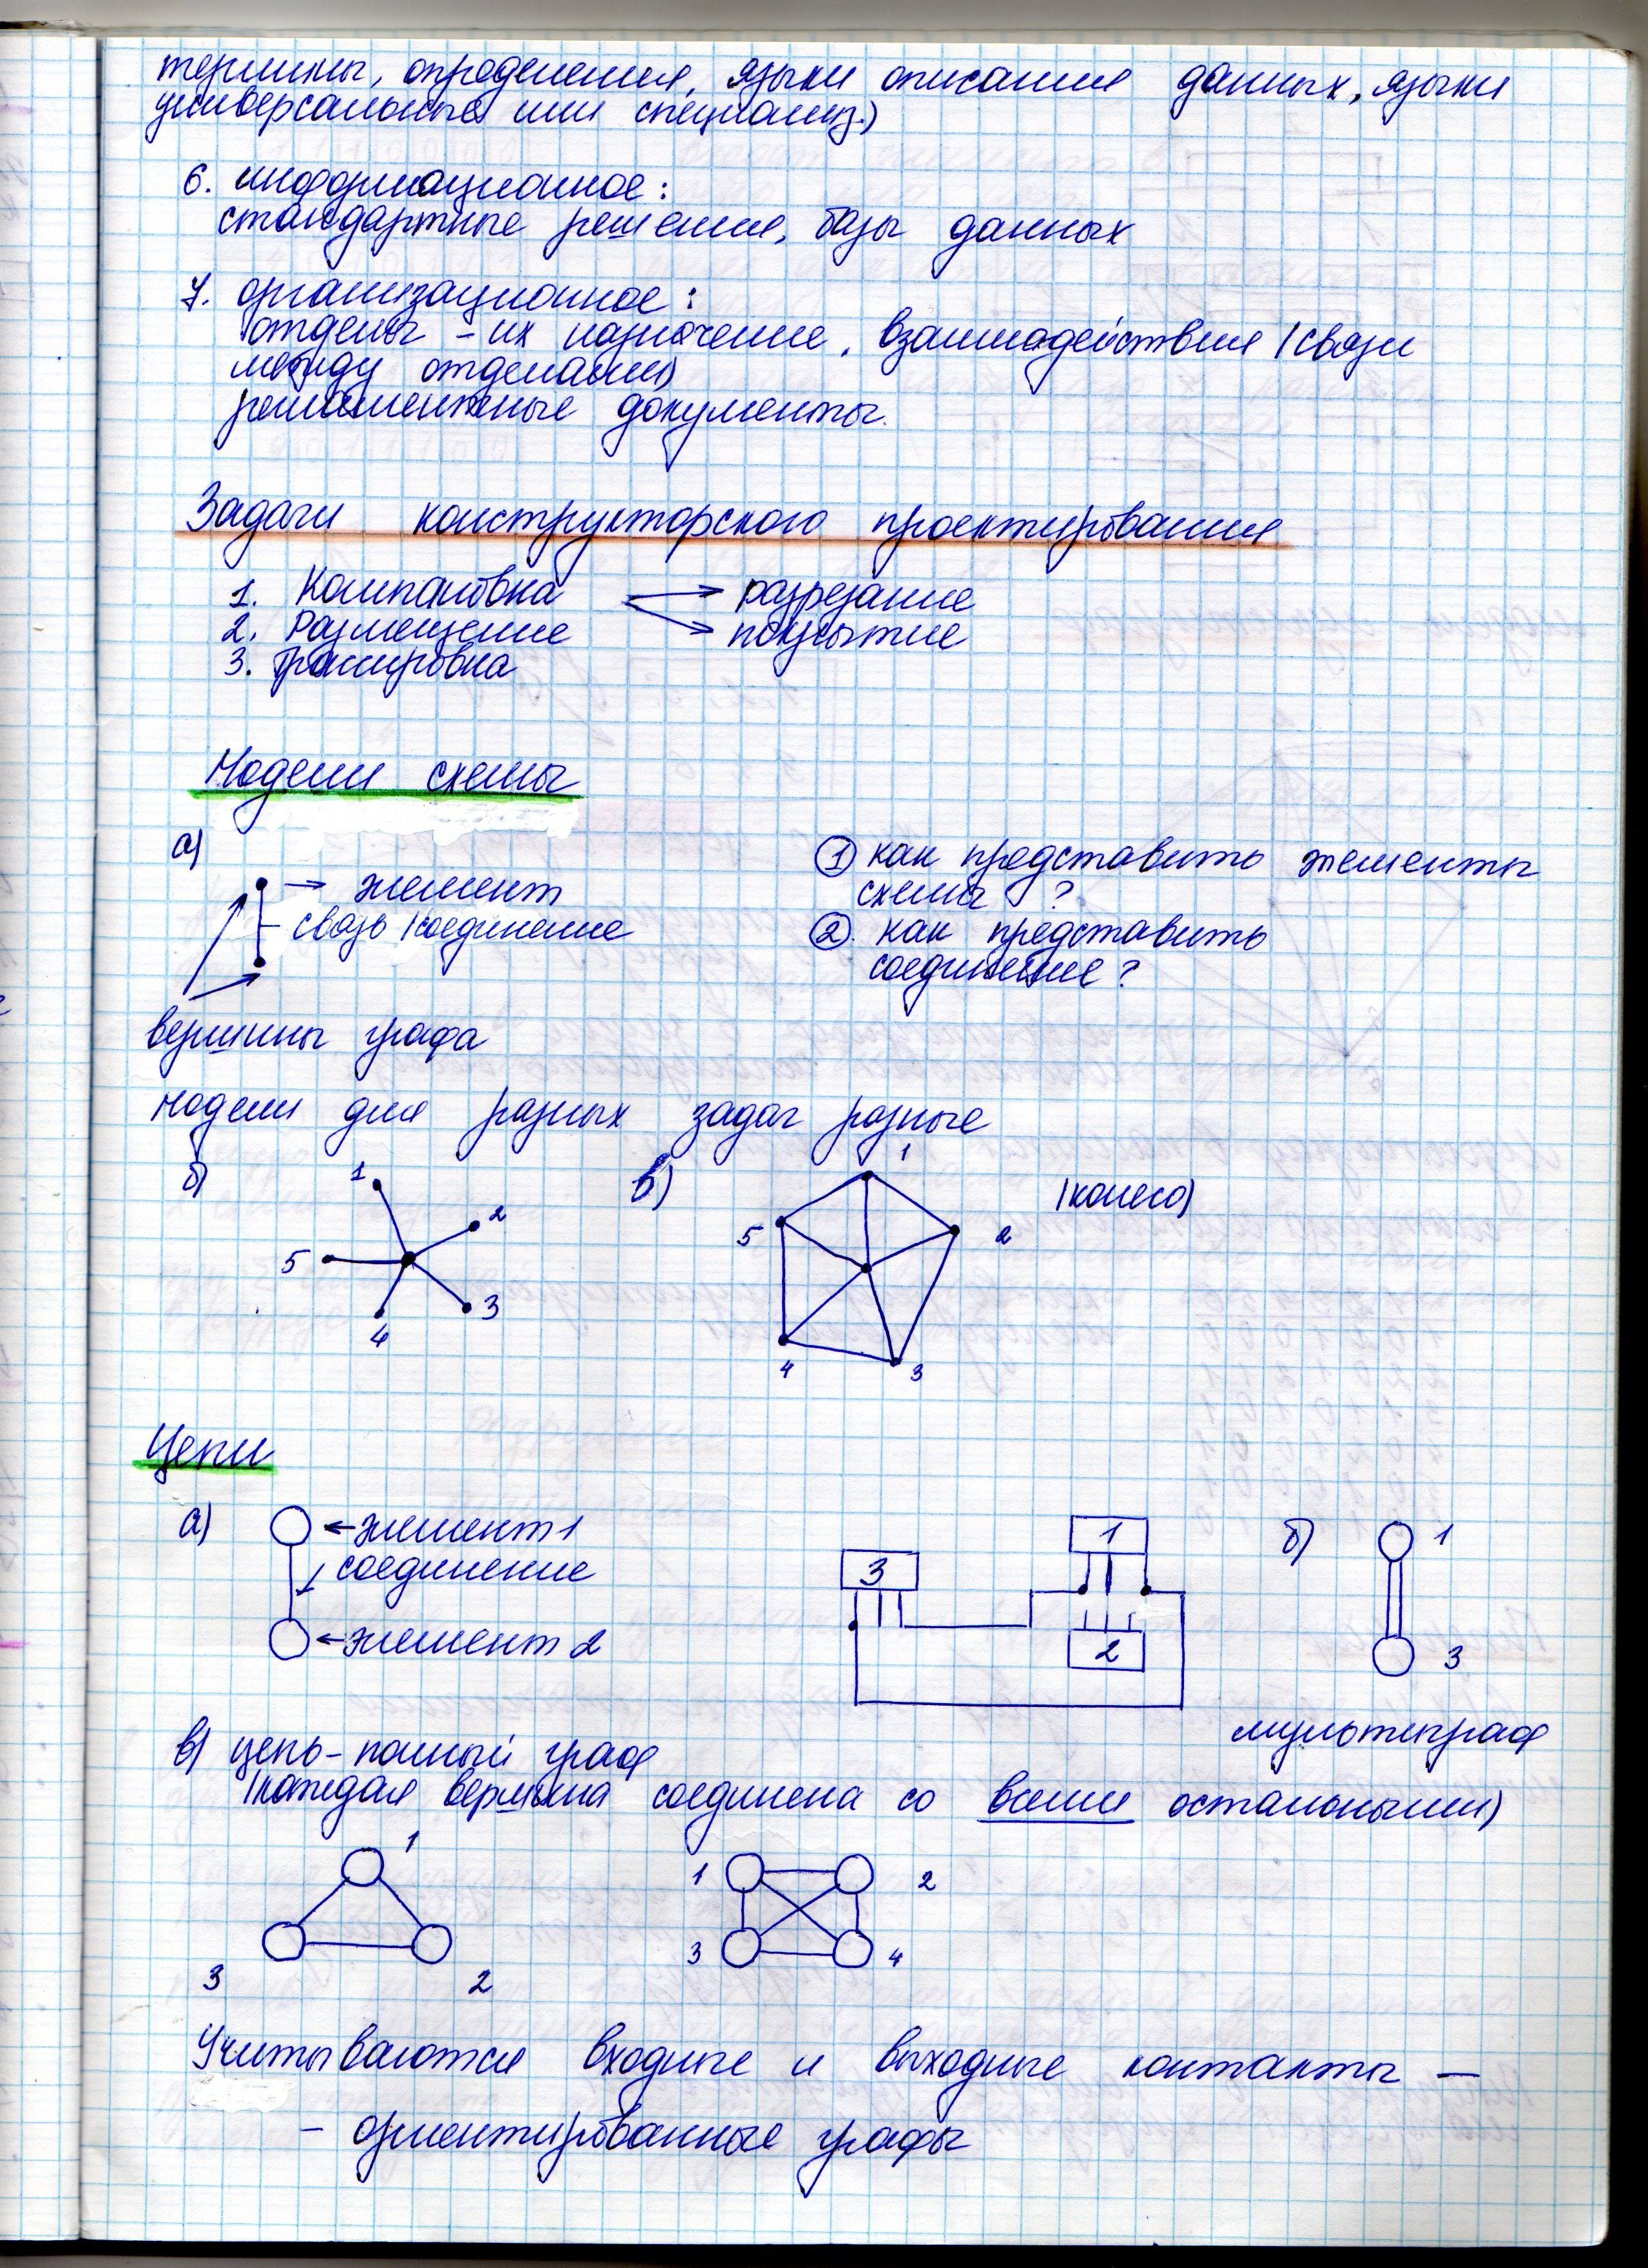 термины, определения, языки описания данных, языки
универсальные или специализ.)
6. информационное:
стандартные решения, базы данных
7. организационное:
отделы - их назначение, взаимодействия (связи
между отделами)
регламентные документы.
Задачи конструкторского проектирования
1. Компановка → разрезание
2. Размещение → покрытие
3. Трассировка
Модели схемы
а)
→ элемент
связь (соединение
вершины графа
① как представить элементы
схемы ?
② как представить
соединение ?
модели для разных задач разные
б) 1 2 3 4 5
в) 1 2 3 4 5 (колесо)
Цепи
а) ← элемент 1
соединение
← элемент 2
3 1 2
б) 1
3
мультиграф
в) цепь - полный граф
(каждая вершина соединена со всеми остальными)
1 3 2
1 2
3 4
Учитываются входные и выходные контакты —
- ориентированные графы